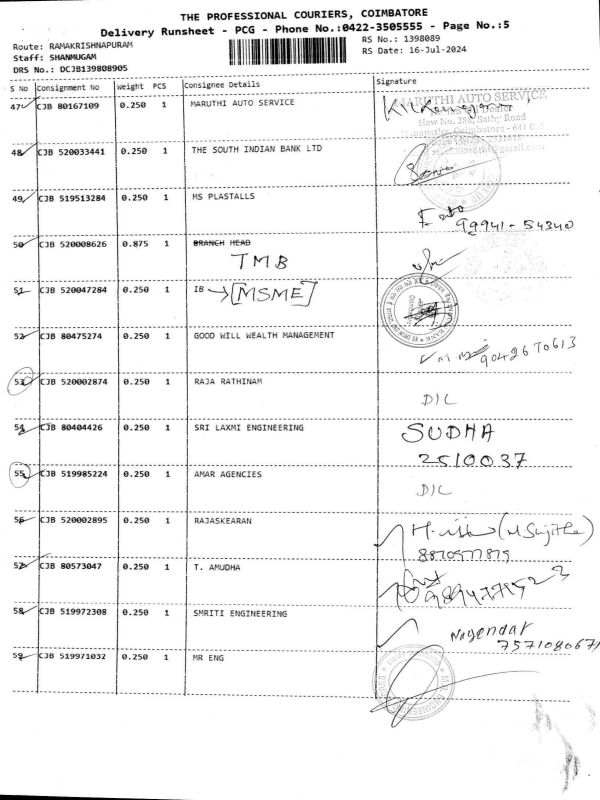 THE PROFESSIONAL COURIERS, COIMBATORE
Delivery Runsheet - PCG - Phone No.:0422-3505555 - Page No.:5
Route: RAMAKRISHNAPURAM
RS No.: 1398089
Staff: SHANMUGAM
RS Date: 16-Jul-2024
DRS No.: DCJB139808905
S No Consignment No Weight PCS Consignee Details Signature
47 CJB 80167109 0.250 1 MARUTHI AUTO SERVICE
MARUTHI AUTO SERVICE
48 CJB 520033441 0.250 1 THE SOUTH INDIAN BANK LTD
49 CJB 519513284 0.250 1 MS PLASTALLS
99941-54340
50 CJB 520008626 0.875 1 BRANCH HEAD
TMB
51 CJB 520047284 0.250 1 IB → [MSME]
52 CJB 80475274 0.250 1 GOOD WILL WEALTH MANAGEMENT
9042670613
53 CJB 520002874 0.250 1 RAJA RATHINAM
D/L
54 CJB 80404426 0.250 1 SRI LAXMI ENGINEERING
SUDHA
2510037
55 CJB 519985224 0.250 1 AMAR AGENCIES
D/L
56 CJB 520002895 0.250 1 RAJASKEARAN
57 CJB 80573047 0.250 1 T. AMUDHA
58 CJB 519972308 0.250 1 SMRITI ENGINEERING
Nagendar
7571080671
59 CJB 519971032 0.250 1 MR ENG